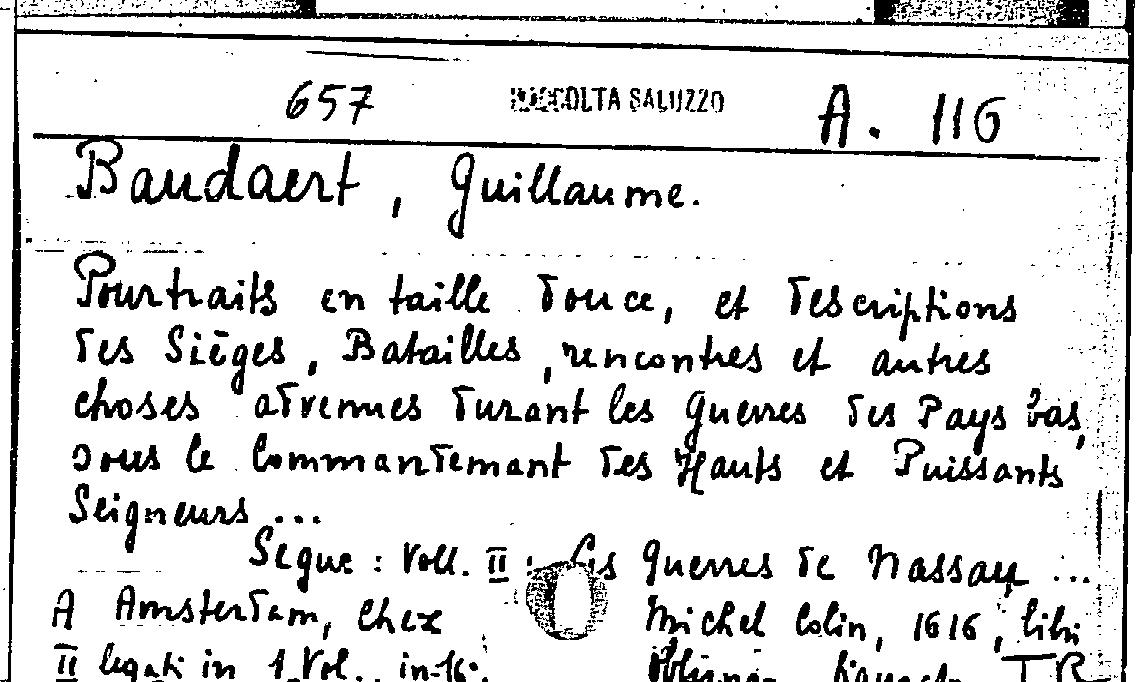 657 RACCOLTA SALUZZO A. 116
Baudaert, Guillaume.
Pourtraits en taille douce, et descriptions
des Sièges, Batailles, rencontres et autres
choses advenues durant les guerres des Pays bas,
sous le Commandemant des Hauts et Puissants
Seigneurs ...
Segue: Voll. II: Les Guerres de Nassau ...
A Amsterdam, chez Michel Colin, 1616, libri
II legati in 1 Vol., in-16;